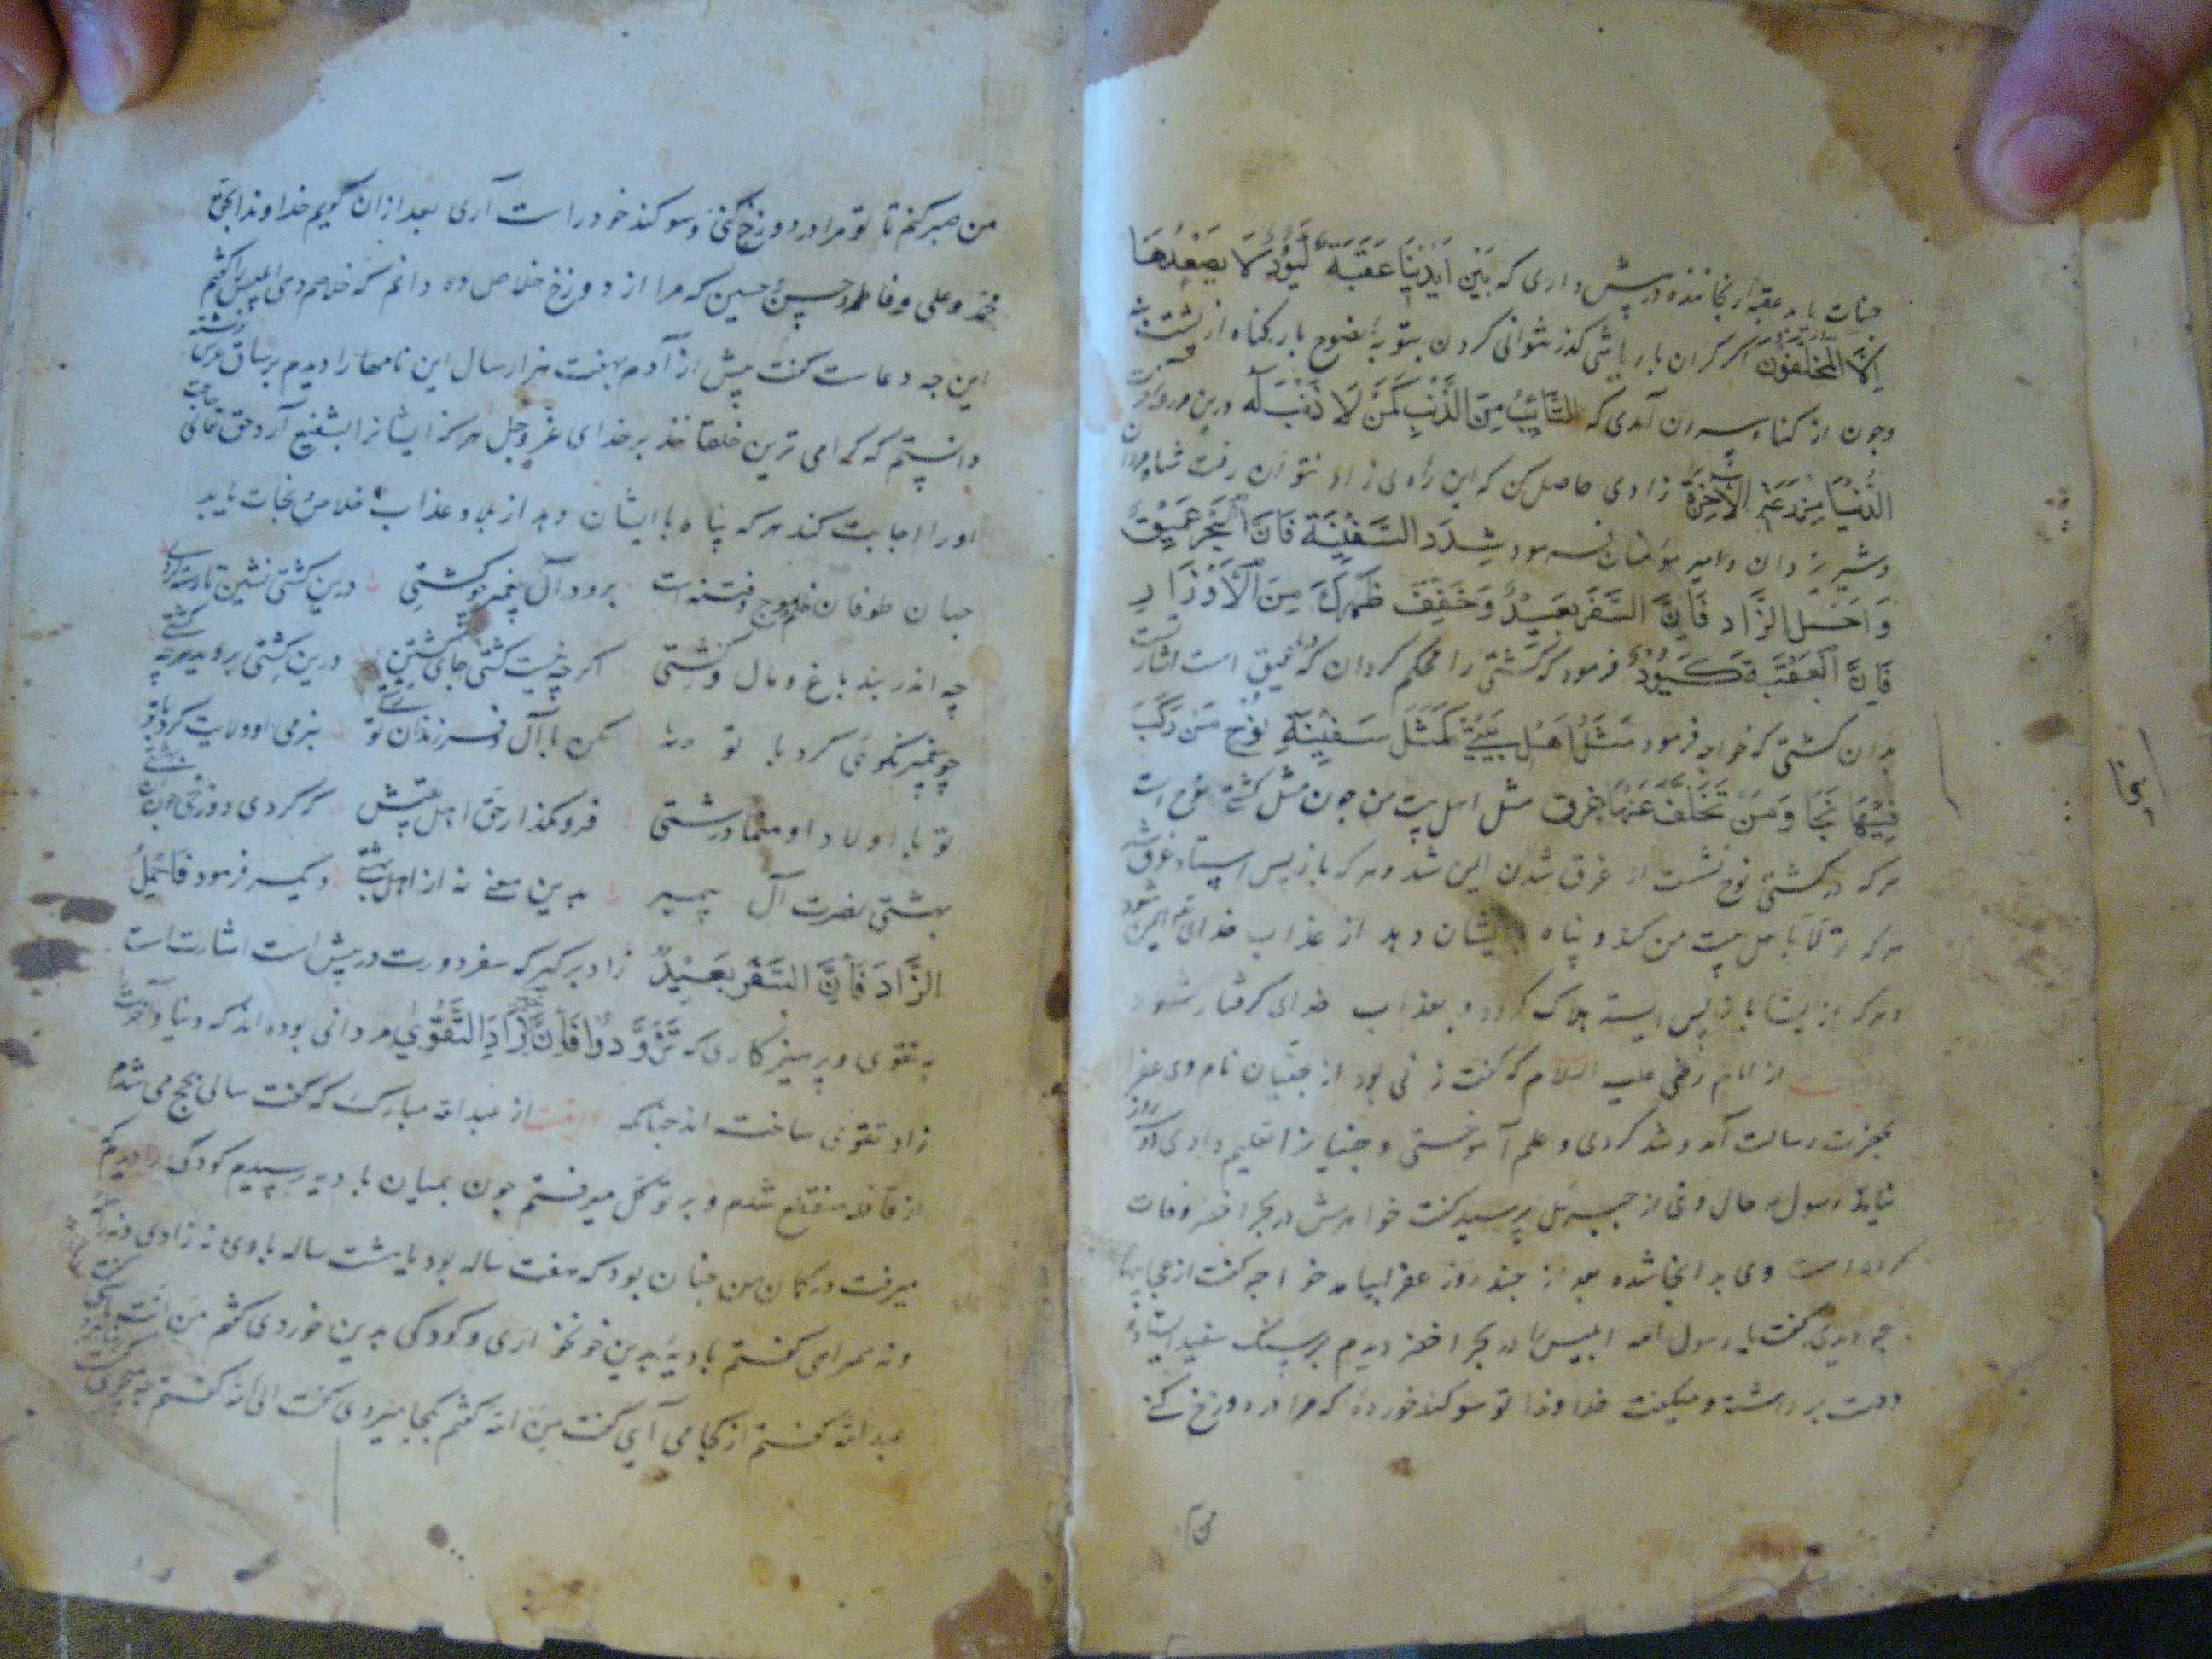 بین ایدینا عقبة کیود لا یصعدها
الا المخلفون اگر گران بار باشی گذر نتوانی کردن بتوبه نصوح بار گناه از پشت
وجون از گناه بیرون آمدی که التائب من الذنب کمن لا ذنب له درین
الدنیا مزرعة الآخرة زادی حاصل کن که این راه بی زاد نتوان رفت شاه مردان
وشیر یزدان وامیر مؤمنان فرمود شدد السفینة فان البحر عمیق
واحمل الزاد فان السفر بعید وخفف ظهرک من الاوزار
فان العقبة کیود فرمود که کشتی را محکم گردان که دریا عمیق است اشارتست
بدان کشتی که خواجه فرمود مثل اهل بیتی کمثل سفینة نوح من رکب
فیها نجا ومن تخلف عنها غرق مثل اهل بیت من جون مثل کشتی نوح است
هر که در کشتی نوح نشست از غرق شدن ایمن شد وهر که باز پس ایستاد غرق شد
هر که تولا باهل بیت من کند وپناه با ایشان دهد از عذاب خدای ایمن شود
وهر که از ایشان باز پس ایستد هلاک گردد وبعذاب خدای گرفتار شود
از امام رضی علیه السلام که گفت زنی بود از جنیان نام وی عفرا
بحضرت رسالت آمد وشد کردی وعلم آموختی وجنیانرا تعلیم دادی
نیامد رسول حال وی از جبرئیل پرسید گفت خواهرش در بحر اخضر وفات
کرده است وی بدانجا شده بعد از چند روز عفرا بیامد خواجه گفت از عجایبها
چه دیدی گفت یا رسول الله ابلیس را در بحر اخضر دیدم بر سنک سفید ایستاده
دست برداشته ومیگفت خداوندا تو سوگند خورده که مرا در دوزخ کنی
من
من صبر کنم تا تو مرا در دوزخ کنی وسوگند خود راست آری بعد از آن گویم خداوندا بحق
محمد وعلی وفاطمه وحسن وحسین که مرا از دوزخ خلاص ده دانم که خلاصم دهی ابلیس را گفتم
این چه دعاست گفت پیش از آدم بهفت هزار سال این نامها را دیدم بر ساق عرش نوشته
دانستم که گرامی ترین خلقانند بر خدای عز وجل هر که ایشانرا بشفیع آرد حق تعالی حاجت
اورا اجابت کند هر که پناه با ایشان دهد از بلا وعذاب خلاص ونجات یابد
جهان طوفان غم وموج فتنه است برو در آل پیغمبر جو کشتی درین کشتی نشین تا رسته گردی
چه اندر بند باغ ومال وکشتی اگر چه نیست کشتی جای کشتن درین کشتی بروید هر چه کشتی
چو پیغمبر نکوئی کرد با تو مکن با آل وفرزندان تو بنرمی او ولایت کرد با تو
تو با اولاد او منما درشتی فرو مگذار حق اهل بیتش که گردی دوزخی
بهشتی نصرت آل پیمبر بدین معنی نه از اهل بهشتی دیگر فرمود فاحمل
الزاد فان السفر بعید زاد برگیر که سفر دورت در پیش است اشارت است
به تقوی وپرهیزکاری که تزودوا فان خیر الزاد التقوی مردانی بوده اند که دنیا وآخرت
زاد تقوی ساخته اند چنانکه از عبد الله مبارک که گفت سالی بحج می شدم
از قافله منقطع شدم وبر توکل میرفتم جون بمیان بادیه رسیدم کودکی را دیدم
میرفت در گمان من چنان بود که هفت ساله بود یا هشت ساله با وی نه زادی
ونه همراهی گفتم بادیه بدین خونخواری وکودکی بدین خوردی گفتم من انت
عبد الله گفتم از کجا می آیی گفت من الله گفتم کجا میروی گفت الی الله گفتم